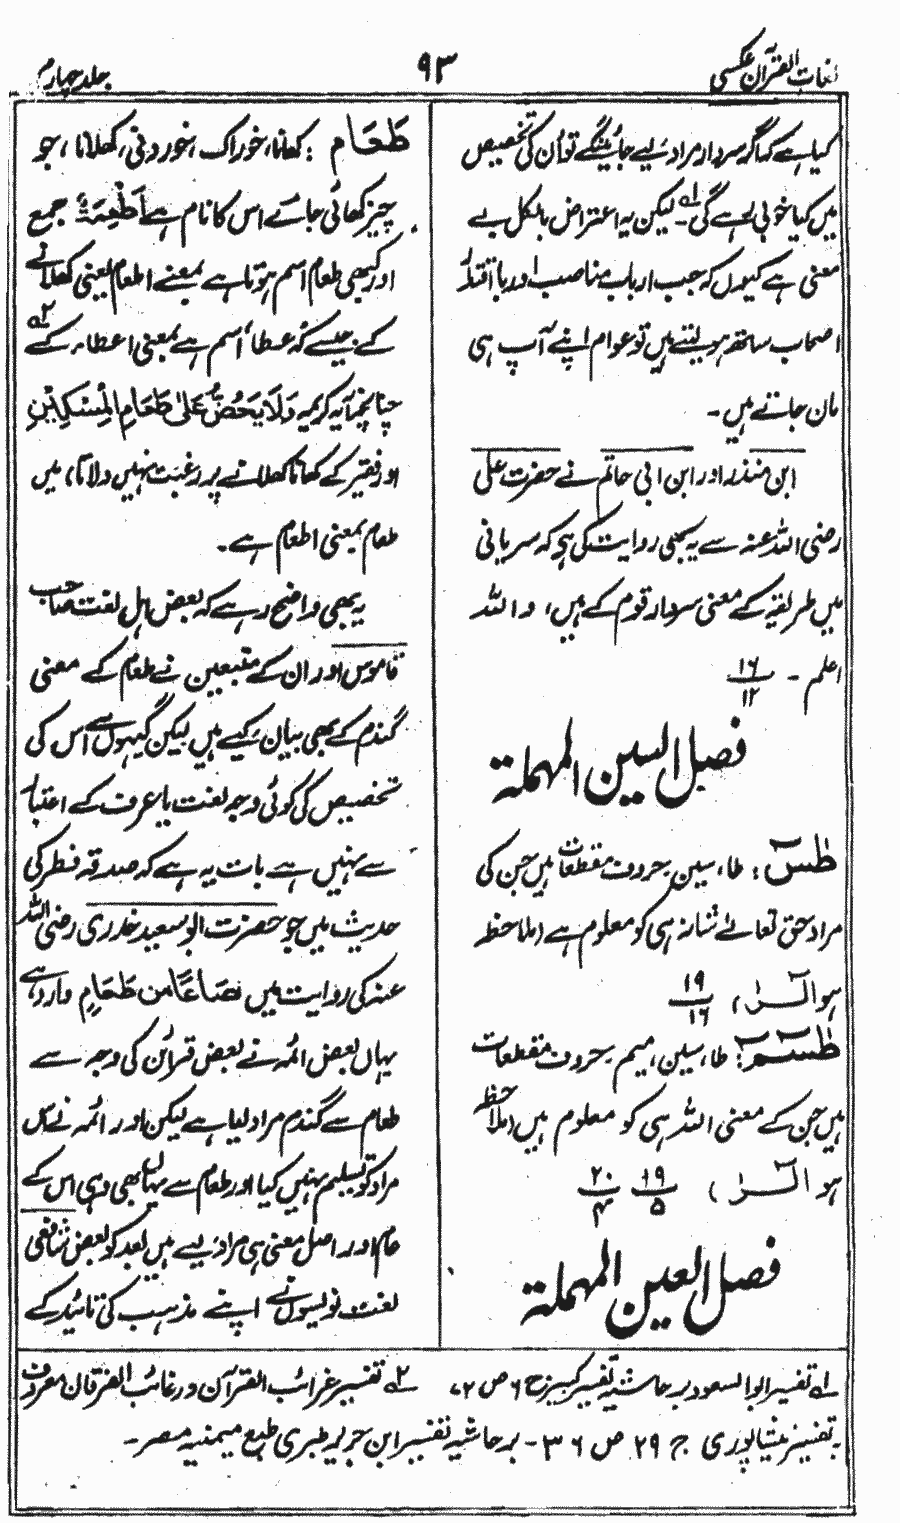 لغات القرآن عکسی
۹۳
جلد چہارم
کیا ہے کہ اگر سردار مراد لیے جائینگے تو اُن کی تخصیص
میں کیا خوبی رہے گی۔ لہ لیکن یہ اعتراض بالکل بے
معنی ہے کیوں کہ جب ارباب مناصب اور با اقتدار
اصحاب ساتھ ہو لیتے ہیں تو عوام اپنے آپ ہی
مان جاتے ہیں۔
ابن منذر اور ابن ابی حاتم نے حضرت علی
رضی اللہ عنہ سے یہ بھی روایت کی ہے کہ سریانی
میں طریقہ کے معنی سردار قوم کے ہیں، واللہ
اعلم۔ ۱۶/۱۲
فصل السین المہملۃ
طٰسٓ: طا، سین۔ حروف مقطعات ہیں جن کی
مراد حق تعالےٰ شانہٗ ہی کو معلوم ہے (ملاحظہ
ہو الٓرٰ) ۱۹/۱۶
طٰسٓمٓ: طا، سین، میم۔ حروف مقطعات
ہیں جن کے معنی اللہ ہی کو معلوم ہیں (ملاحظہ
ہو الٓرٰ) ۱۹/۵ ۲۰/۴
فصل العین المہملۃ
طَعَام: کھانا، خوراک، خوردنی، کھلانا، جو
چیز کھائی جائے اس کا نام ہے اَطْعِمَۃٌ جمع
اور کبھی طعام اسم ہوتا ہے بمعنے اطعام یعنی کھلانے
کے۔ جیسے کہ عطاء اسم ہے بمعنی اعطاء کے ۲ہ
چنانچہ آیہ کریمہ وَلَا یَحُضُّ عَلٰی طَعَامِ الْمِسْکِیْنِ
اور فقیر کے کھانا کھلانے پر رغبت نہیں دلاتا) میں
طعام بمعنی اطعام ہے۔
یہ بھی واضح رہے کہ بعض اہل لغت صاحب
قاموس اور ان کے متبعین نے طعام کے معنی
گندم کے بھی بیان کیے ہیں لیکن گیہوں سے اس کی
تخصیص کی کوئی وجہ لغت یا عرف کے اعتبار
سے نہیں ہے بات یہ ہے کہ صدقہ فطر کی
حدیث میں جو حضرت ابو سعید خدری رضی اللہ
عنہ کی روایت میں صَاعًا مِن طَعَامٍ وارد ہے
یہاں بعض ائمہ نے بعض قرائن کی وجہ سے
طعام سے گندم مراد لیا ہے لیکن اور ائمہ نے اس
مراد کو تسلیم نہیں کیا اور طعام سے یہاں بھی وہی اس کے
عام اور اصل معنی ہی مراد لیے ہیں بعد کو بعض شافعی
لغت نویسوں نے اپنے مذہب کی تائید کے
لہ تفسیر ابو السعود بر حاشیہ تفسیر کبیر ج ۶ ص ۷۲، ۲ہ تفسیر غرائب القرآن و رغائب الفرقان معروف
بہ تفسیر نیشاپوری ج ۲۹ ص ۳۶۔ بر حاشیہ تفسیر ابن جریر طبری طبع میمنیہ مصر۔